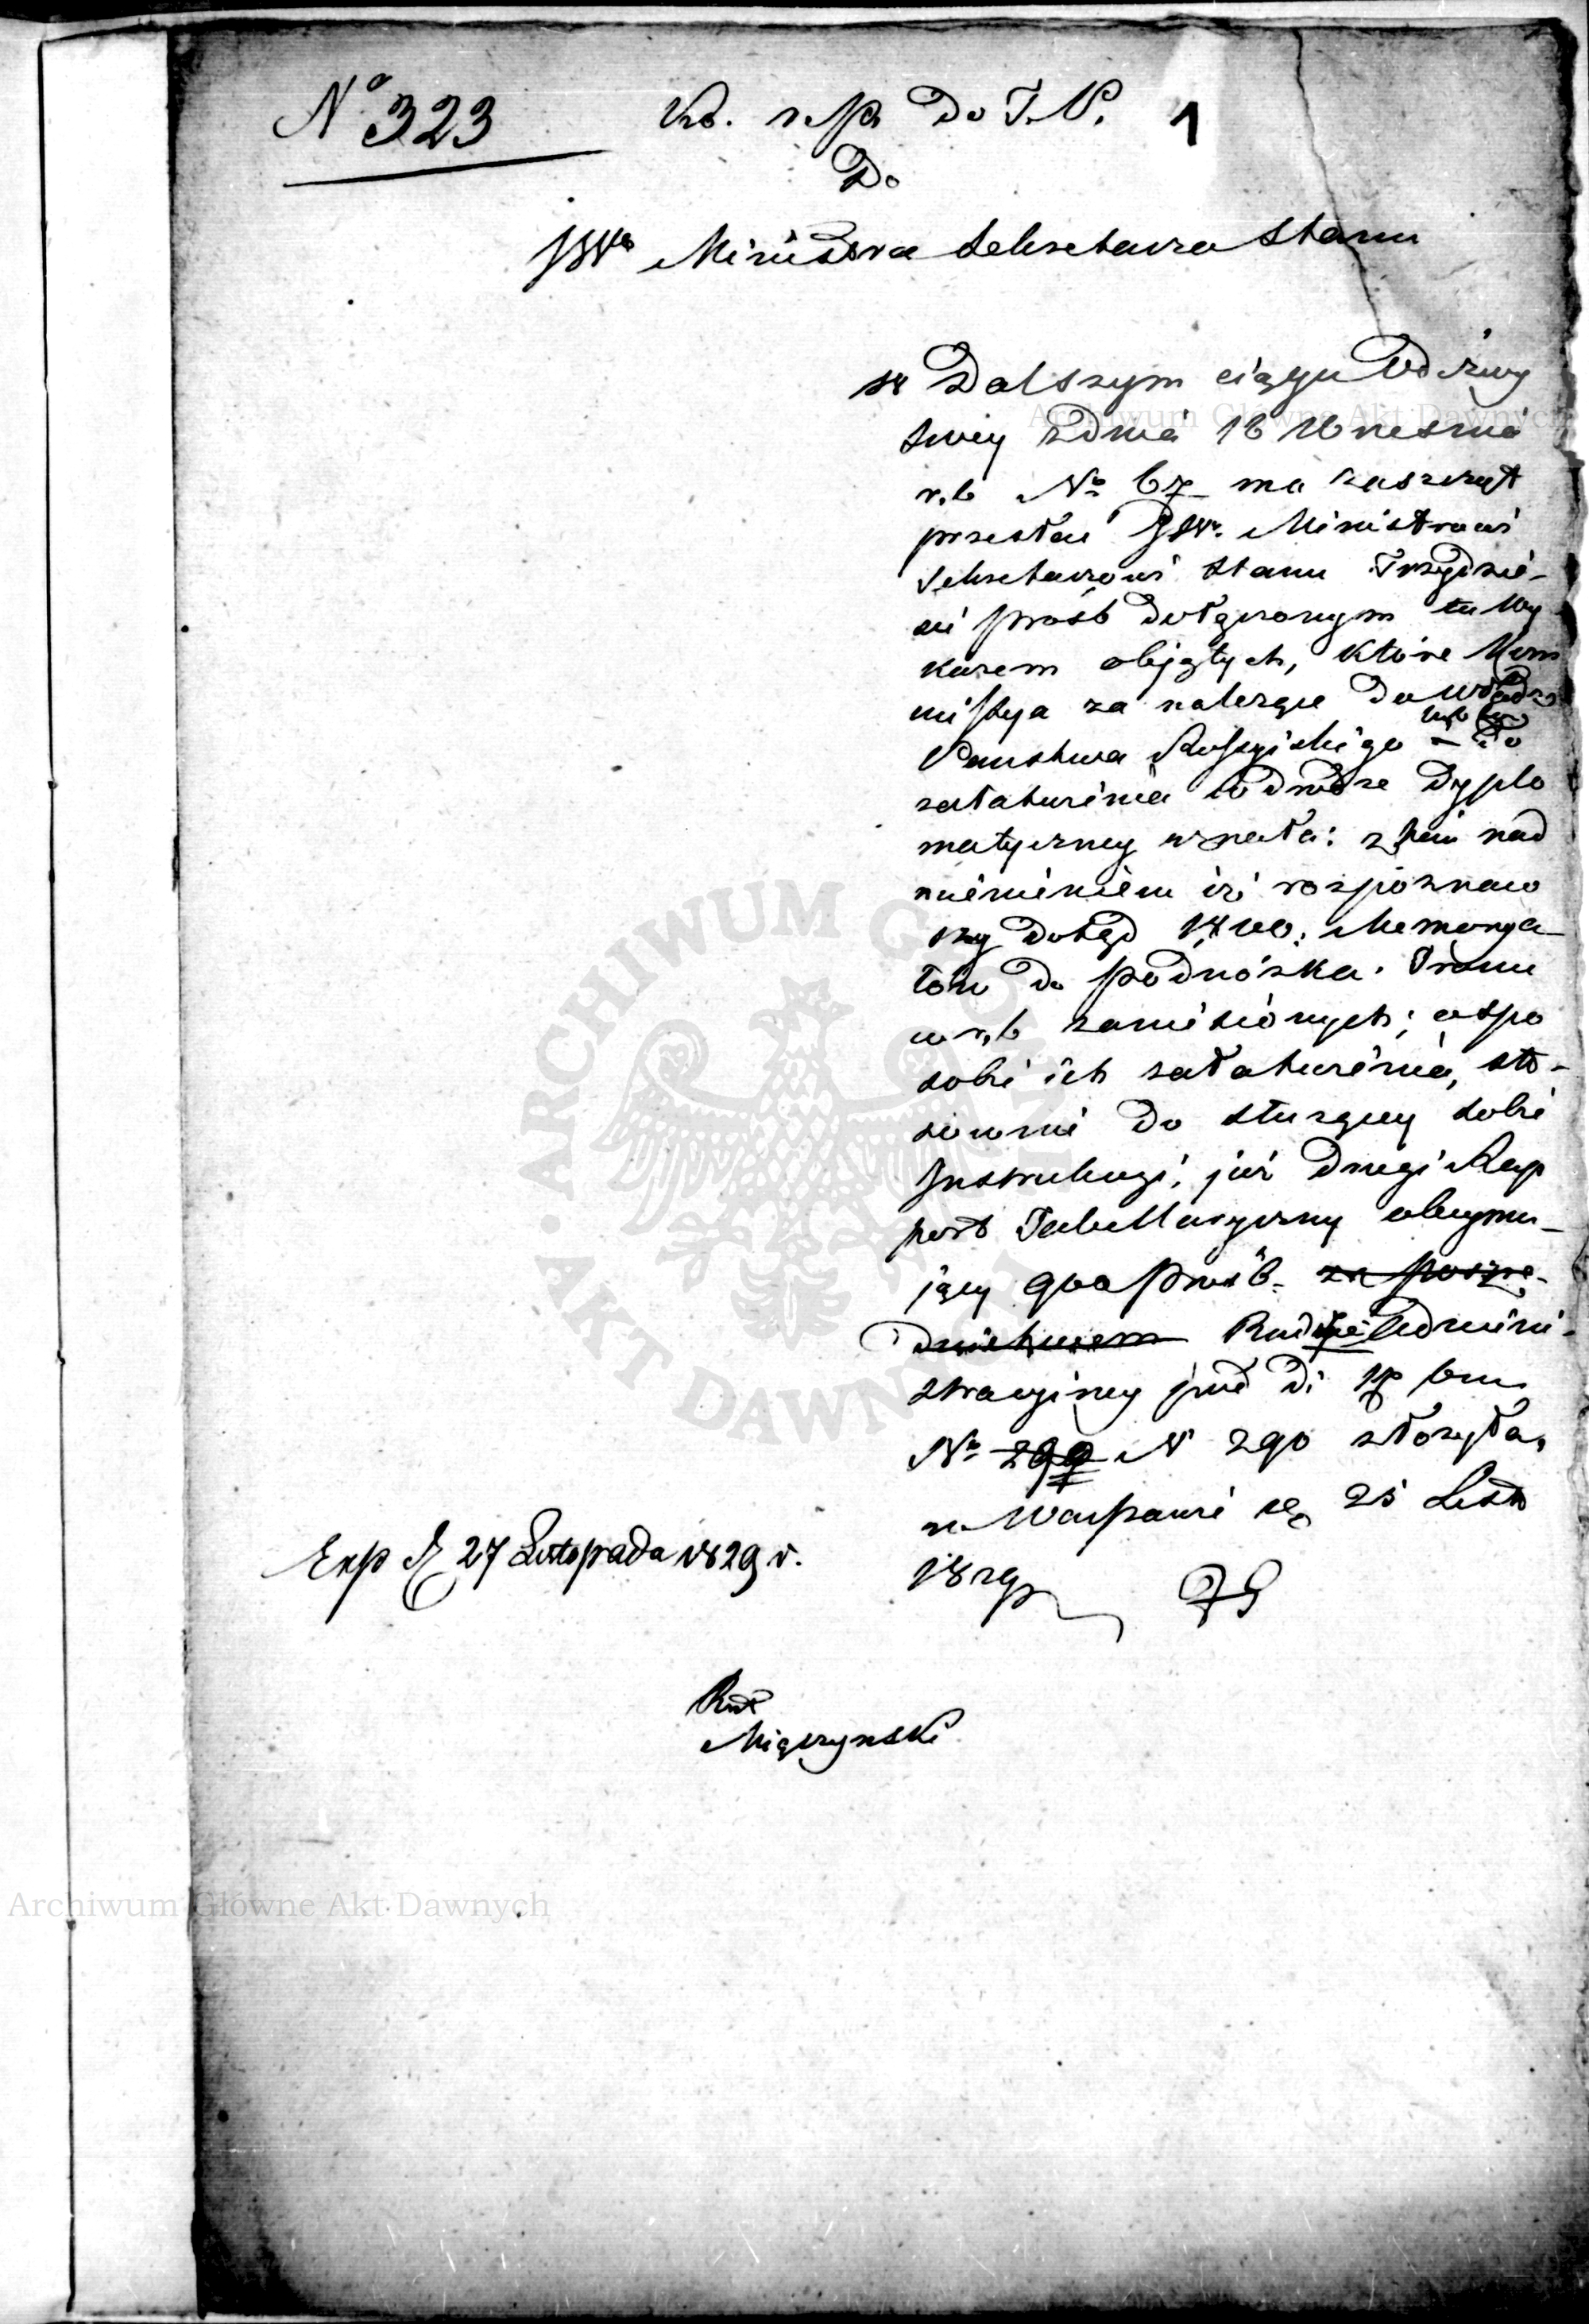 No 323
Ko. r. Np. Do T. P. 1
Do
JWo Ministra Sekretarza Stanu
w Dalszym ciągu Odezwy
Swey z dnia 16 Wresnia
r.b No 67 ma zaszczyt
przesłać JW. Ministrowi
Sekretarzowi Stanu Trzydzie-
ści prośb dołączonym tu Wy-
kazem objętych, które Kom
missya za należące do władz
Panstwa Rossyiskiego lub też do
załatwienia w drodze Dyplo
matyczney uznała: z tem nad
mienieniem iż rozpoznaw
szy dotąd 1700. Memorya-
łów do podnóżka Tronu
w r.b zaniesionych; o spo
sobie ich załatwienia, sto-
sownie do służącey sobie
Instrukcyi, już drugi Rap
port Tabellaryczny obeymu-
jący 900 prośb. za pośre-
dnictwem Radzie Admini-
stracyiney pod D. 17 bm
No 299 N 290 złożyła.
w Warszawie d. 25 Listo
1829
Exp D 27 Listopada 1829 r.
Rad
Miączyński
Archiwum Główne Akt Dawnych
Archiwum Główne Akt Dawnych
ARCHIWUM GŁÓWNE
AKT DAWNYCH